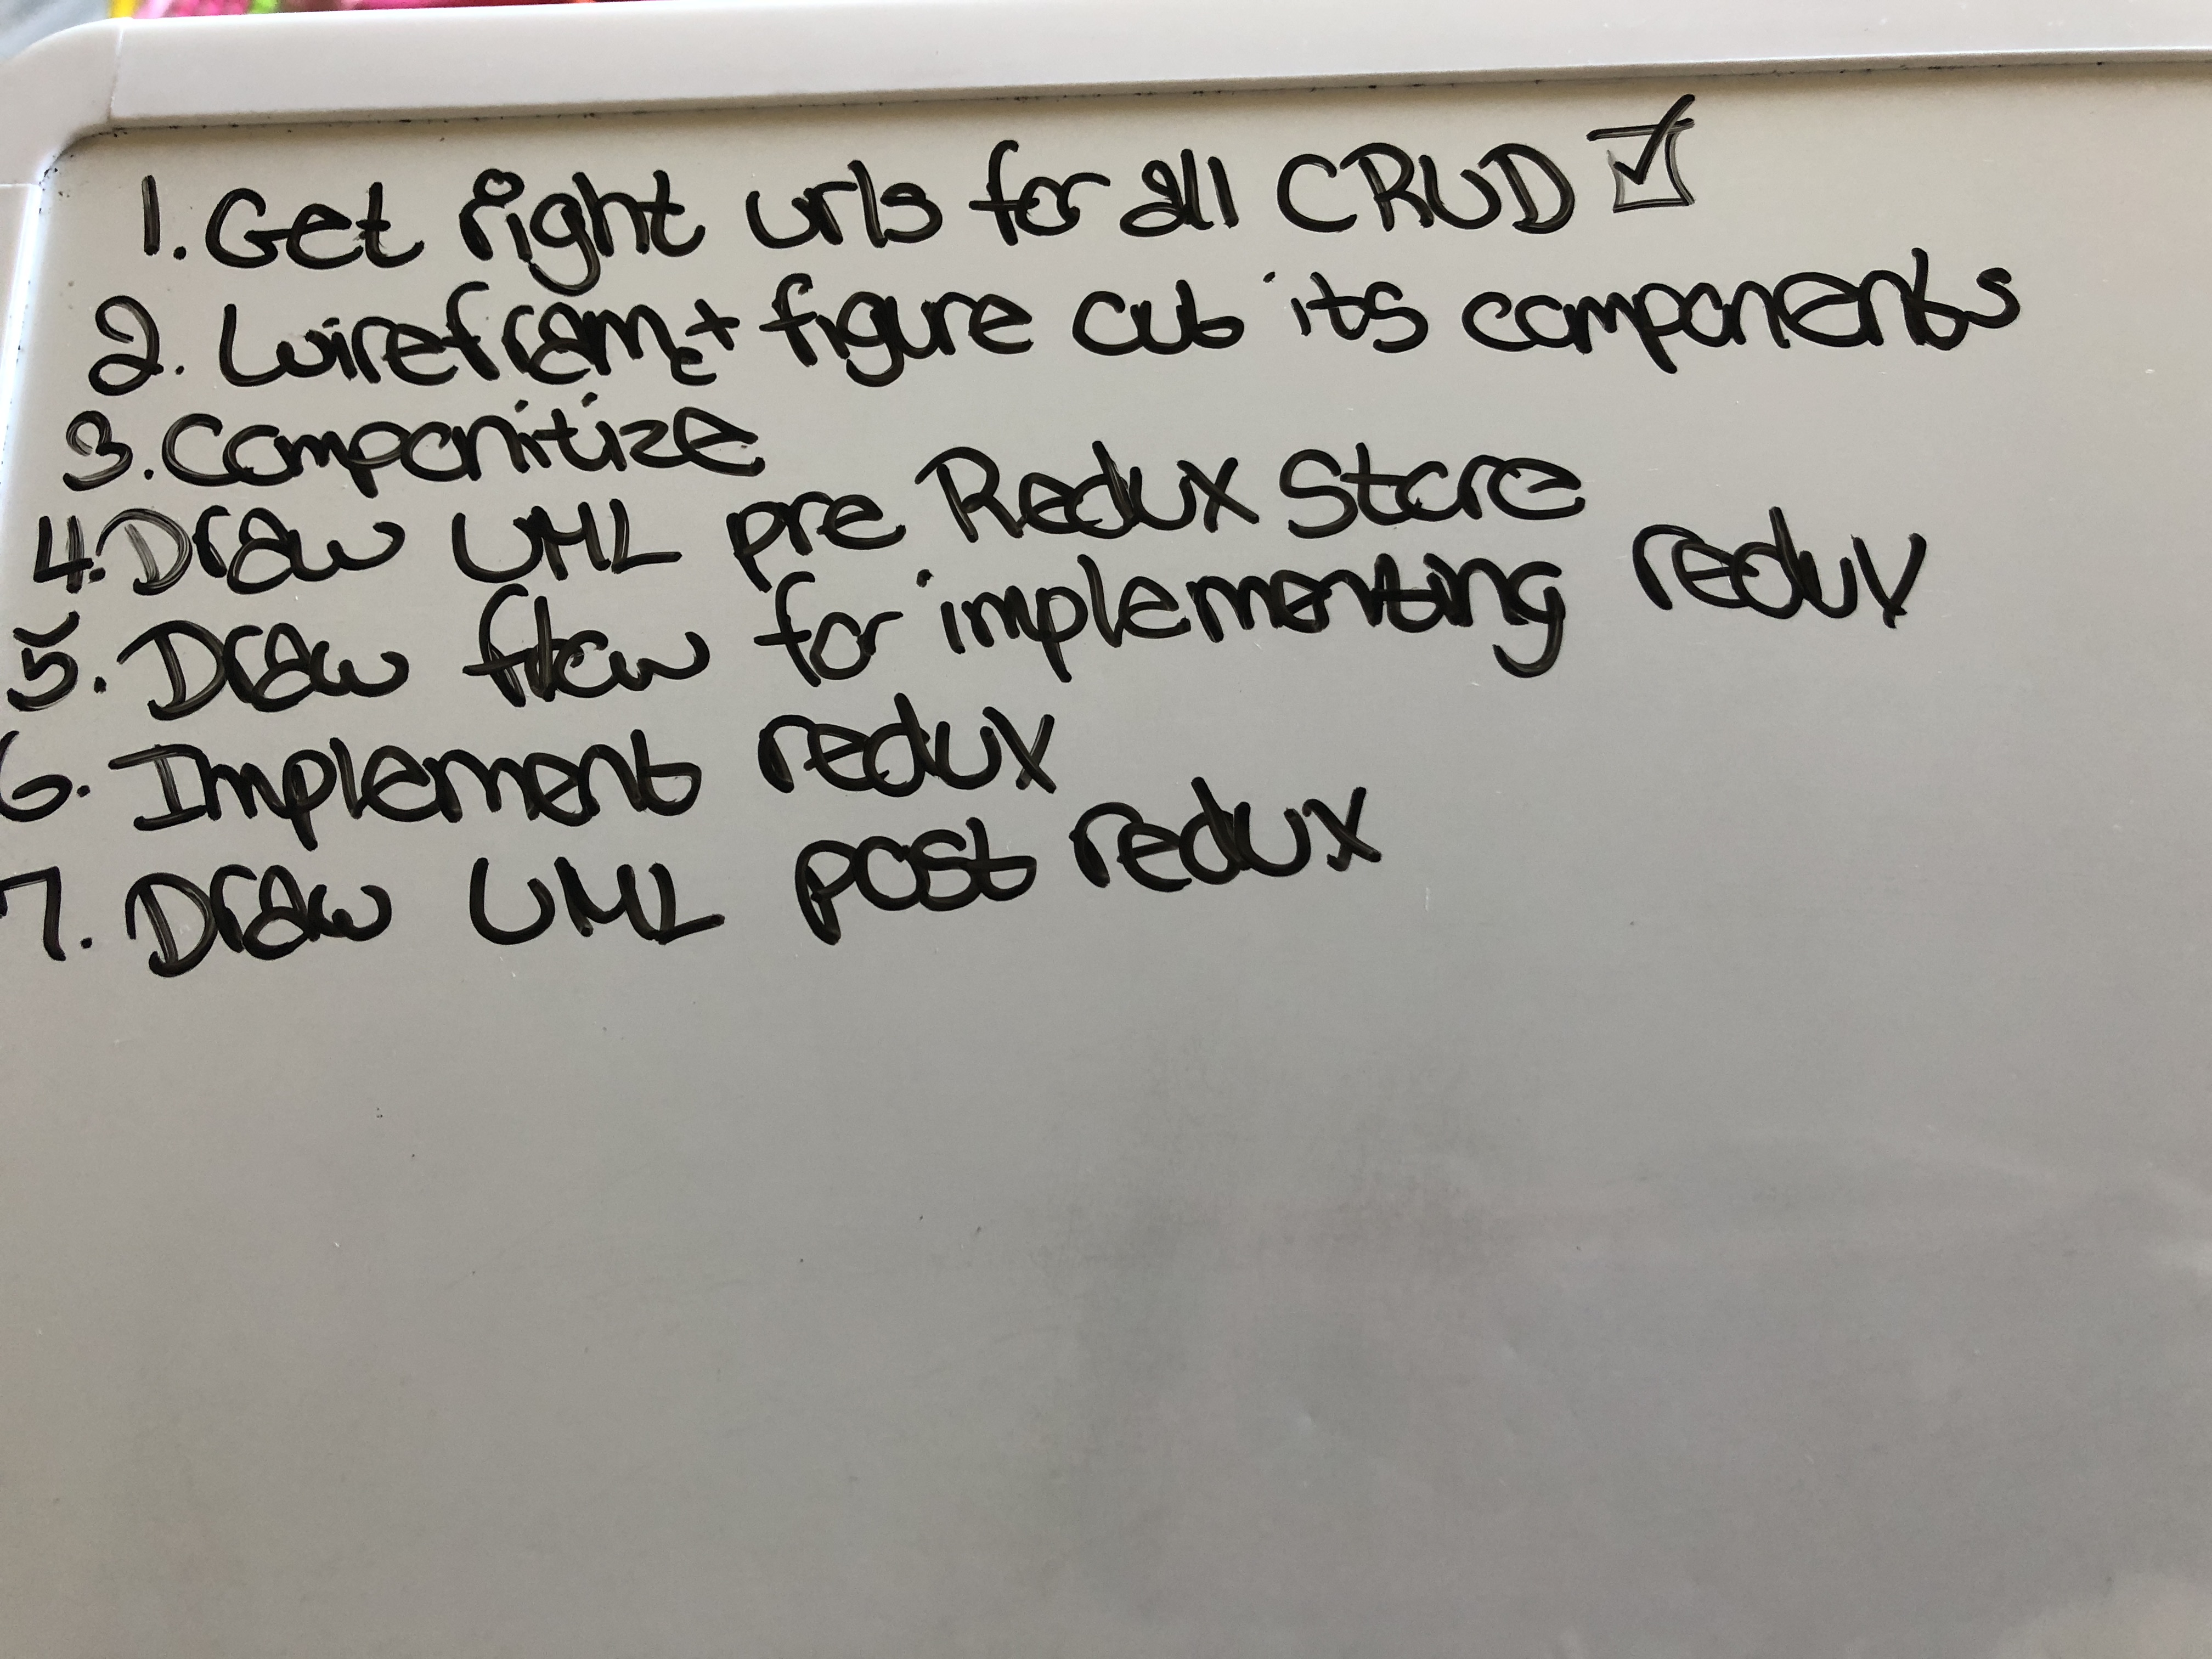 1. Get right urls for all CRUD ☑
2. Wireframe + figure out its components
3. Componitize
4. Draw UML pre Redux Store
5. Draw flow for implementing redux
6. Implement redux
7. Draw UML post redux